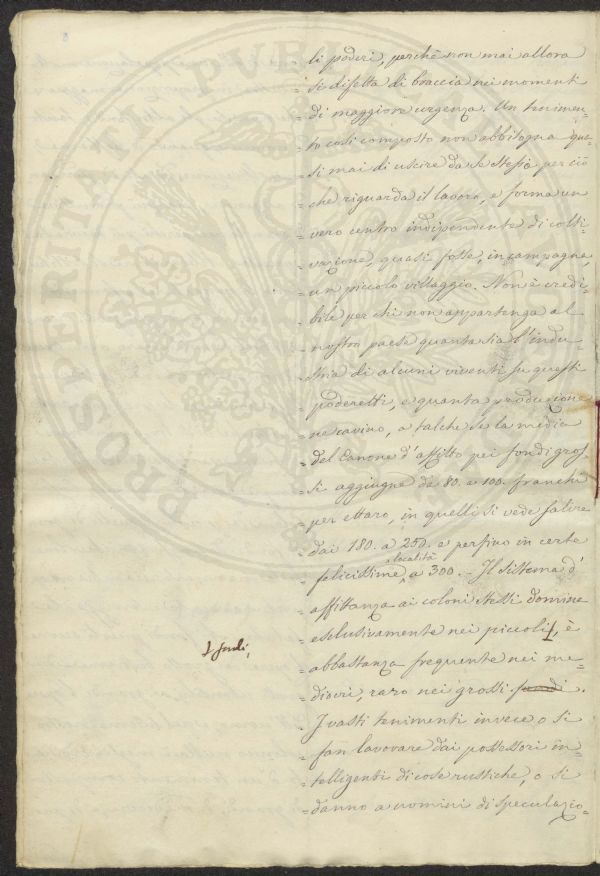 li poderi, perchè non mai allora
= si difetta di braccia nei momenti
= di maggiore urgenza. Un tenimen=
= to così composto non abbisogna qua=
= si mai di uscire da se stesso per ciò
= che riguarda il lavoro, e forma un
= vero centro indipendente di colti=
= vazione, quasi fosse, in campagna,
= un piccolo villaggio. Non è credi=
= bile per chi non appartenga al
= nostro paese quanta sia l'indu=
= stria di alcuni viventi su questi
= poderetti, e quanta produzione
= ne cavino, a talchè se la media
= del Canone d'affitto pei fondi gros
= si aggiugne da 80. a 100. franchi
= per ettaro, in quelli si vede salire
= dai 180. a 250. e perfino in certe
località
= felicissime a 300. Il sistema d'
= affittanza ai coloni stessi domina
= esclusivamente nei piccoli, è
fondi,
= abbastanza frequente nei me=
= diocri, raro nei grossi fondi.
= I vasti tenimenti invece o si
= fan lavorare dai possessori in=
= telligenti di cose rustiche, o si
= danno a uomini di speculazio=
PROSPERITATI PVBL